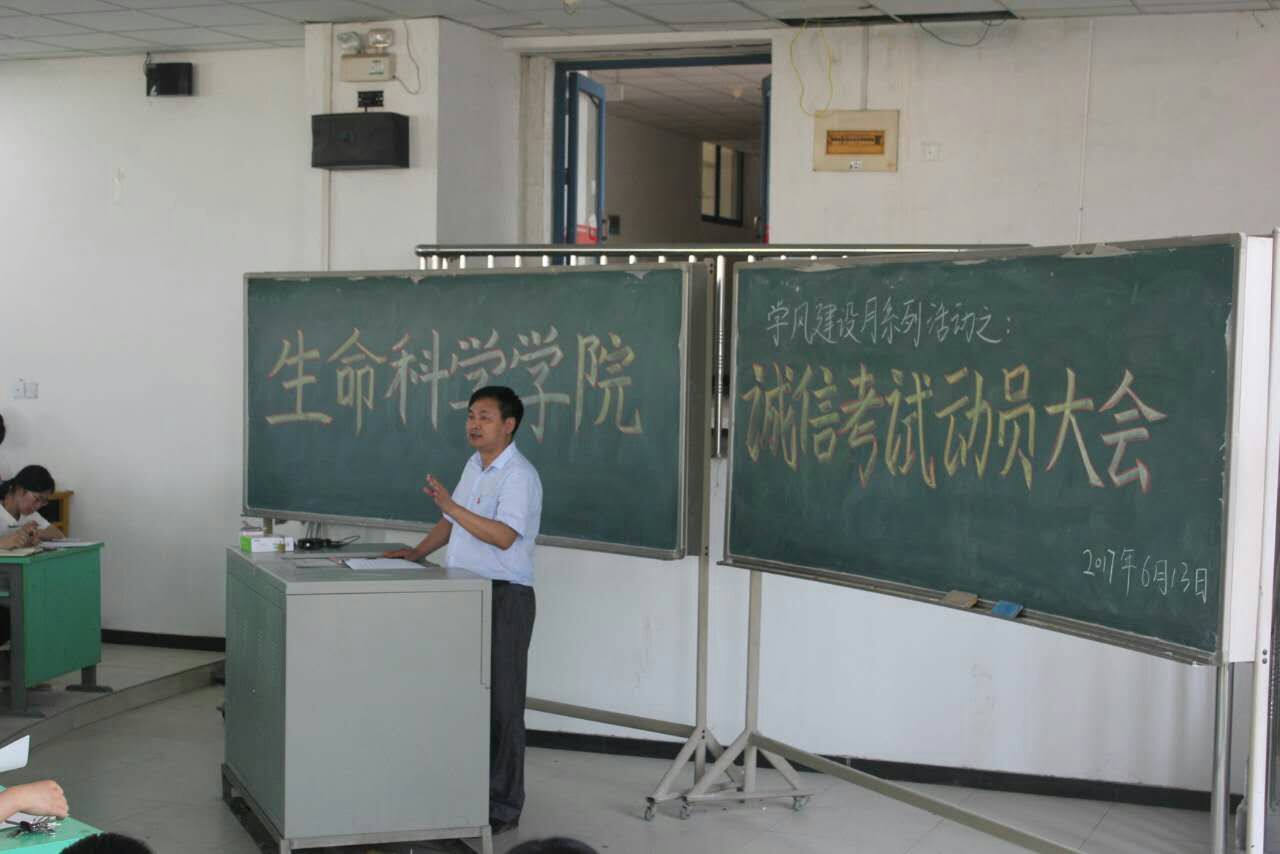 生命科学学院
学风建设月系列活动之：
诚信考试动员大会
2017年6月13日